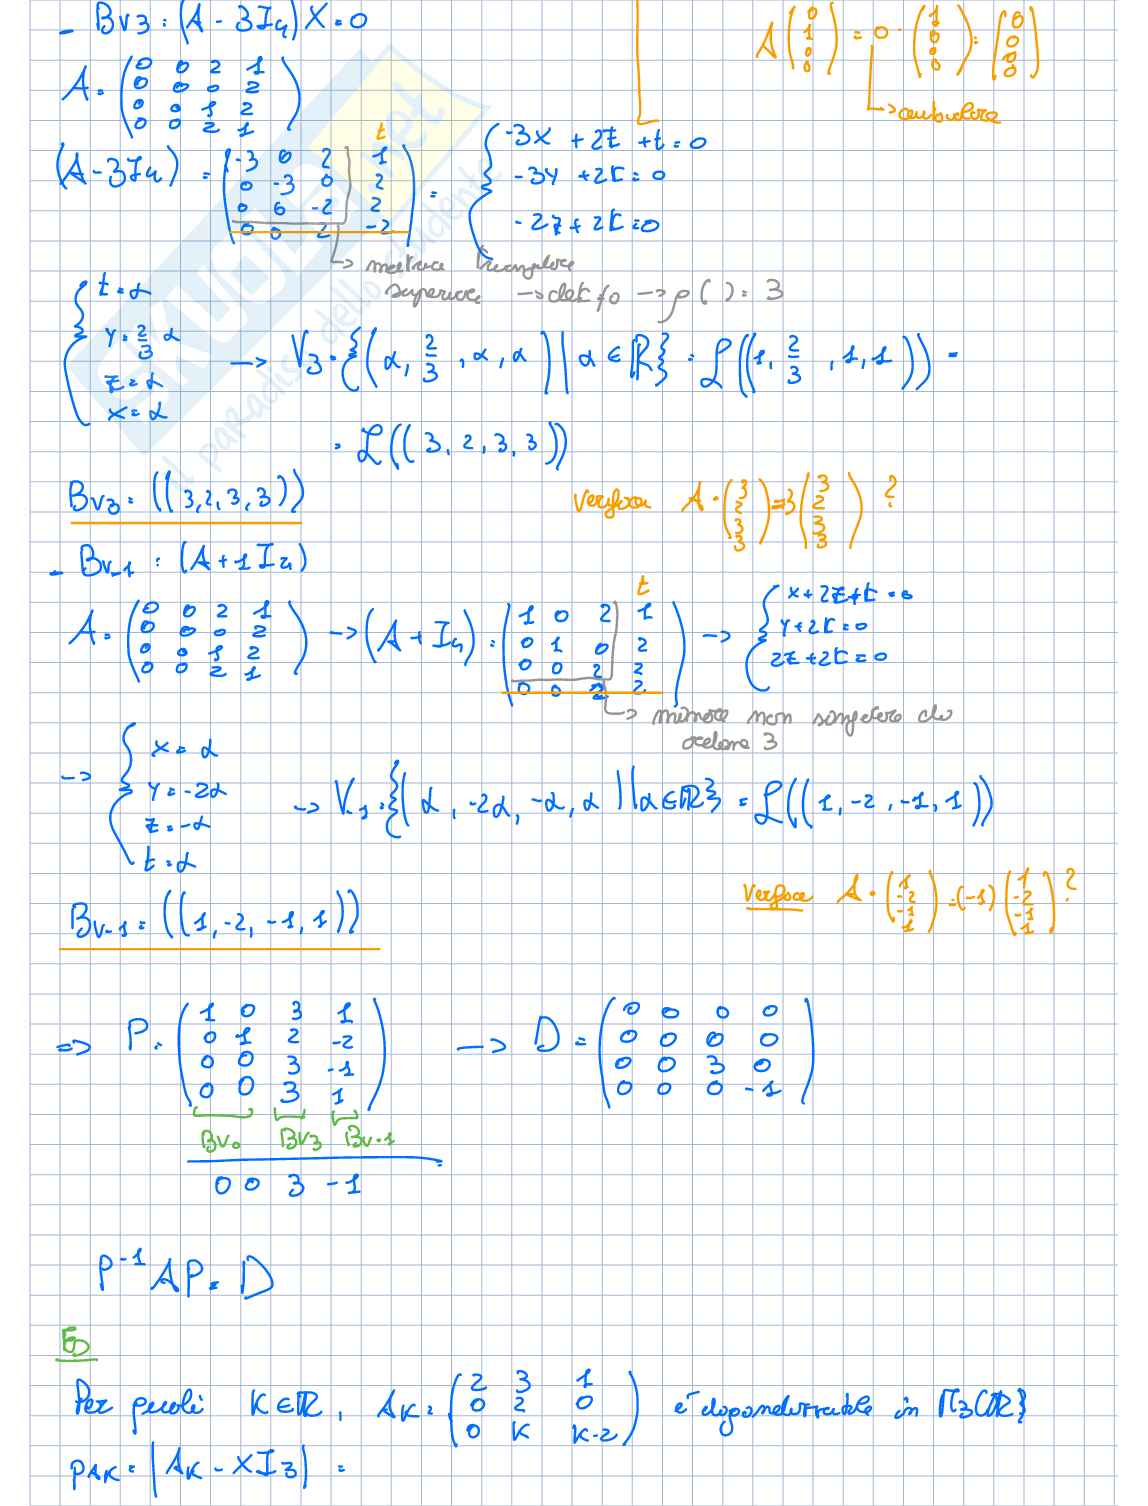 - Bv3 : (A - 3I4) X = 0
A ( 0 1 0 0 ) = 0 · ( 1 0 0 0 ) = ( 0 0 0 0 )
→ autovalore
A = ( 0 0 2 1
0 0 0 2
0 0 1 2
0 0 2 1 )
t
(A - 3I4) = ( -3 0 2 1
0 -3 0 2
0 0 -2 2
0 0 2 -2 ) = { -3x + 2z + t = 0
-3y + 2t = 0
-2z + 2t = 0
→ matrice triangolare
superiore → det ≠ 0 → ρ( ) = 3
{ t = α
y = 2/3 α
z = α
x = α
→ V3 = {(α, 2/3, α, α) | α ∈ ℝ} = ℒ((1, 2/3, 1, 1)) =
= ℒ((3, 2, 3, 3))
Bv3 = ((3, 2, 3, 3))
Verifica A · ( 3 2 3 3 ) = 3 ( 3 2 3 3 ) ?
- Bv-1 : (A + 1I4)
t
A = ( 0 0 2 1
0 0 0 2
0 0 1 2
0 0 2 1 ) → (A + I4) = ( 1 0 2 1
0 1 0 2
0 0 2 2
0 0 2 2 ) → { x + 2z + t = 0
y + 2t = 0
2z + 2t = 0
→ minore non singolare di
ordine 3
→ { x = α
y = -2α
z = -α
t = α
→ V-1 = {(α, -2α, -α, α) | α ∈ ℝ} = ℒ((1, -2, -1, 1))
Bv-1 = ((1, -2, -1, 1))
Verifica A · ( 1 -2 -1 1 ) = (-1) ( 1 -2 -1 1 ) ?
=> P = ( 1 0 3 1
0 1 2 -2
0 0 3 -1
0 0 3 1 ) → D = ( 0 0 0 0
0 0 0 0
0 0 3 0
0 0 0 -1 )
Bv0 Bv3 Bv-1
0 0 3 -1
P⁻¹ A P = D
ES
Per quali K ∈ ℝ, AK = ( 2 3 1
0 2 0
0 K K-2 ) è diagonalizzabile in M3(ℝ)
PAK = |AK - XI3| =
SKUOLA.net
il paradiso dello studente